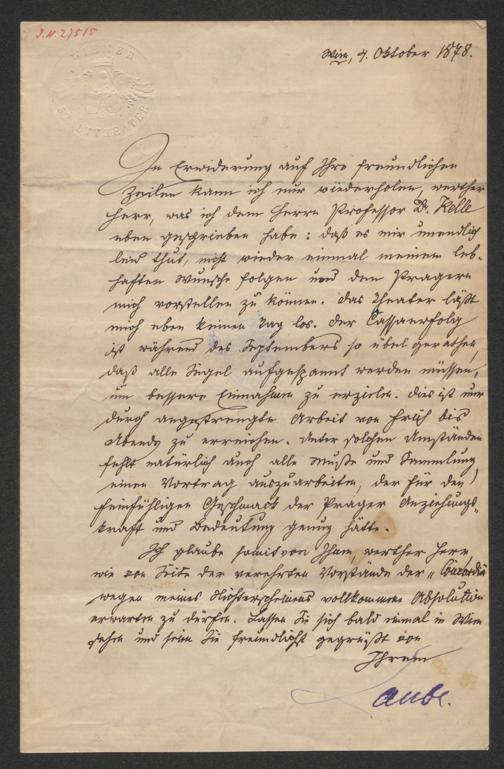 J.N. 27515
WIENER
STADTTHEATER
Wien, 9. Oktober 1878.
In Erwiderung auf Ihre freundlichen
Zeilen kann ich nur wiederholen, werther
Herr, was ich dem Herrn Professor Dr. Kelle
eben geschrieben habe: daß es mir unendlich
leid thut, nicht wieder einmal meinem leb-
haften Wunsche folgen und den Pragern
mich vorstellen zu können. Das Theater läßt
mich eben keinen Tag los. Der Cassaerfolg
ist während des Septembers so übel gerathen,
daß alle Segel aufgespannt werden müssen,
um bessere Einnahmen zu erzielen. Dies ist nur
durch angestrengte Arbeit von Früh bis
Abends zu erreichen. Unter solchen Umständen
fehlt natürlich auch alle Muße und Sammlung
einen Vortrag auszuarbeiten, der für den
feinfühligen Geschmack der Prager Anziehungs-
kraft und Bedeutung genug hätte.
Ich glaube somit von Ihnen, werther Herr
wie von Seite der verehrten Vorstände der „Concordia
wegen meines Nichterscheinens vollkommene Absolution
erwarten zu dürfen. Lassen Sie sich bald einmal in Wien
sehen und seien Sie freundlichst gegrüßt von
Ihrem
Laube.